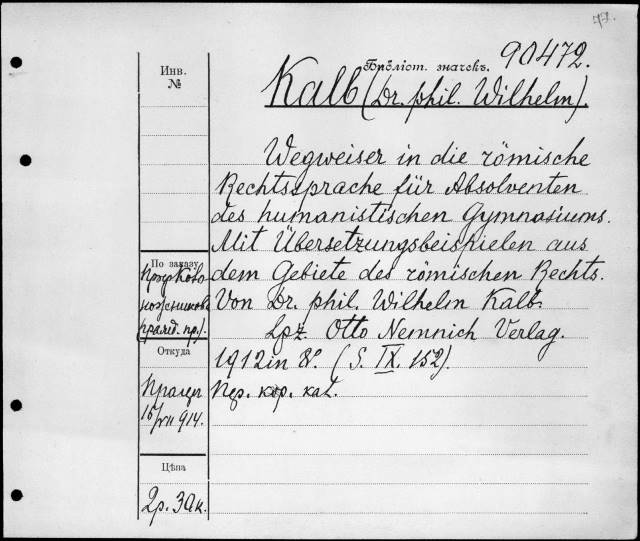 77.
Инв.
№
Бібліот. значекъ. 90472.
Kalb (Dr. phil. Wilhelm).
Wegweiser in die römische
Rechtssprache für Absolventen
des humanistischen Gymnasiums.
Mit Übersetzungsbeispielen aus
dem Gebiete des römischen Rechts.
Von Dr. phil. Wilhelm Kalb.
Lpz. Otto Nemnich Verlag.
1912 in 8º. (S. IX. 152).
кор. кат.
По заказу
Откуда
15/VII 914.
Цѣна
2р. 30к.